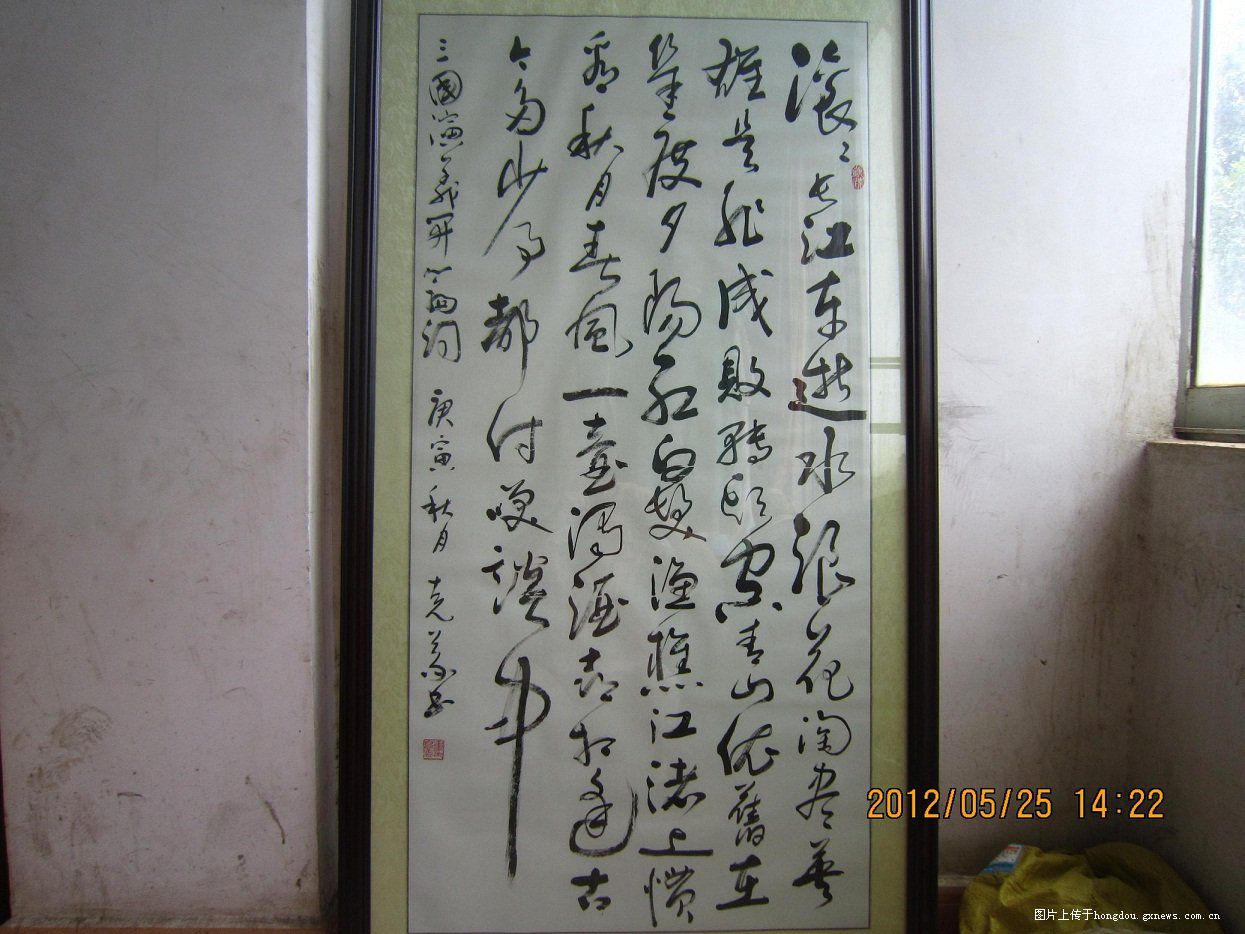 滚滚长江东逝水浪花淘尽英
雄是非成敗轉頭空青山依舊在
幾度夕陽红白髮漁樵江渚上慣
看秋月春風一壺濁酒喜相逢古
今多少事都付笑談中
三國演義開篇詞 庚寅秋月 克书
2012/05/25 14:22
图片上传于hongdou.gxnews.com.cn